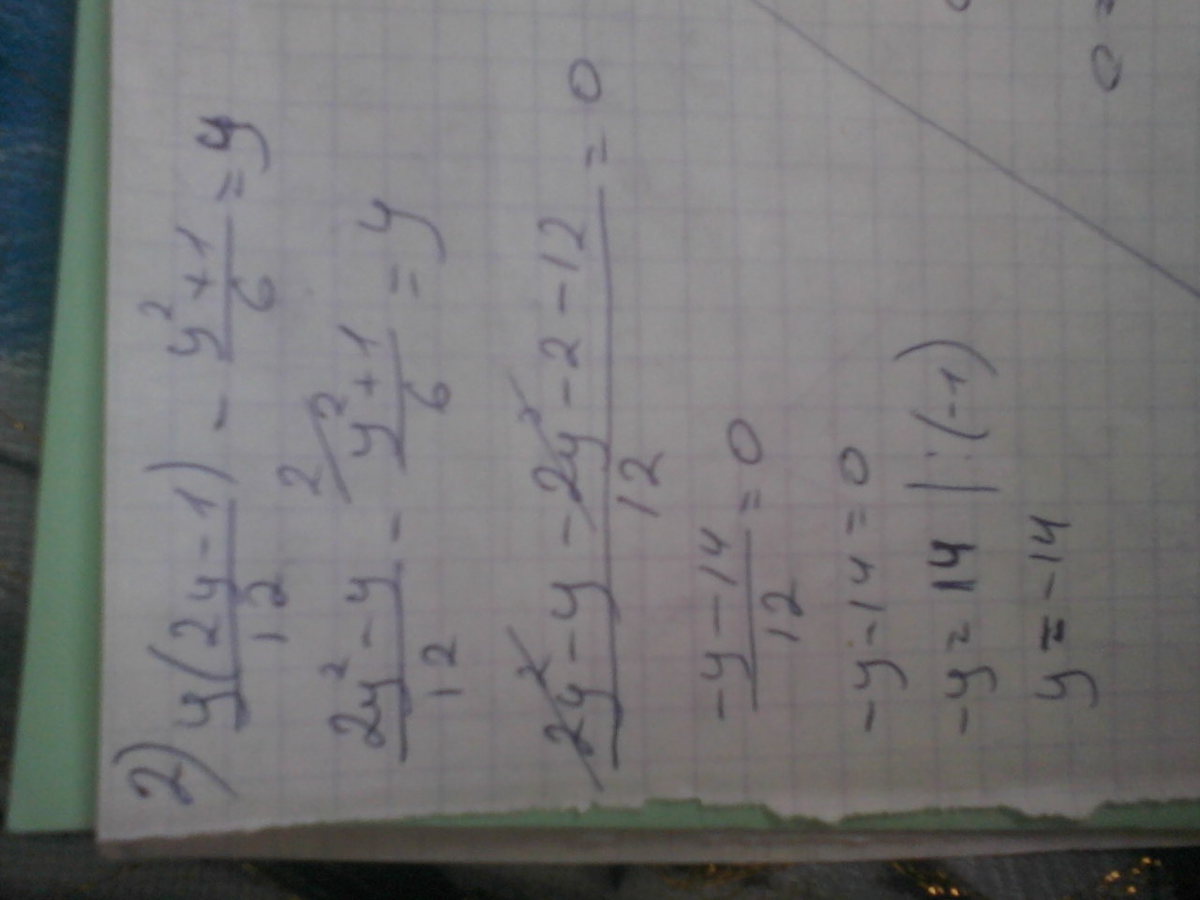 2) y(2y-1)/12 - y²+1/6 = y
2y²-y/12 - ²/ y²+1/6 = y
2y²-y-2y²-2-12/12 = 0
-y-14/12 = 0
-y-14=0
-y=14 |:(-1)
y=-14
0=